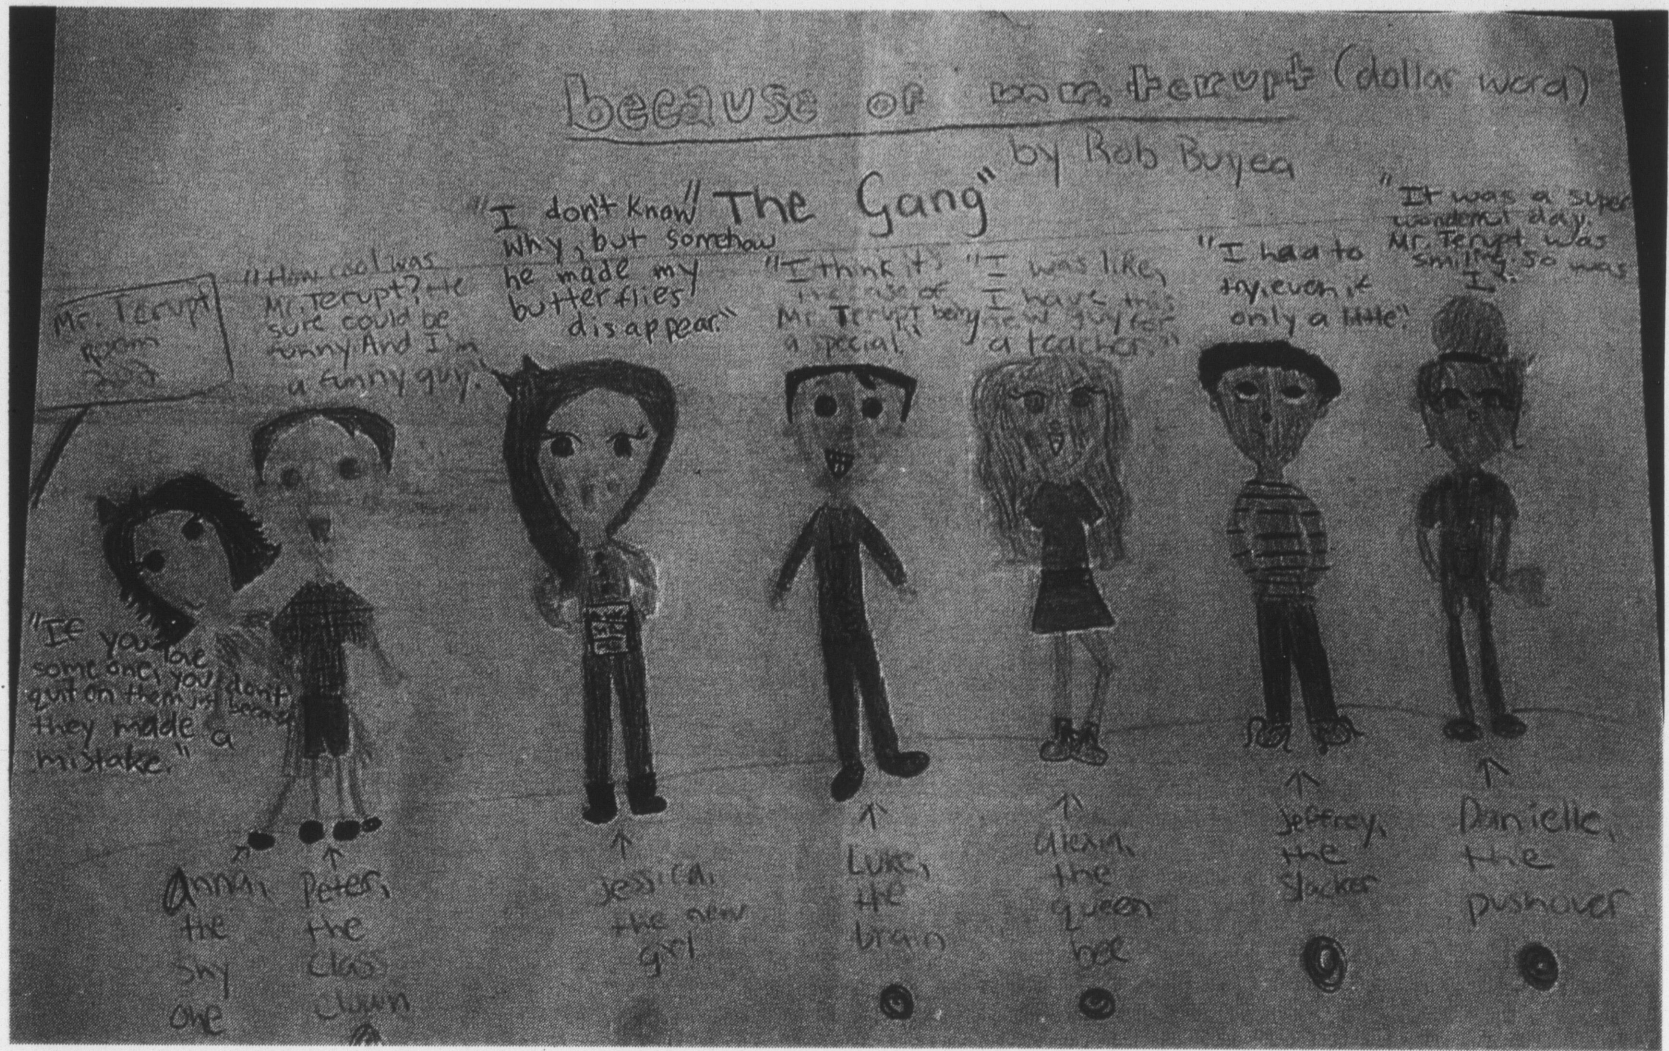 because of mr. terupt (dollar word)
by Rob Buyea
"The Gang"
Mr. Terupt
Room
202
"How cool was
Mr. Terupt? He
sure could be
funny. And I'm
a funny guy."
"I don't know
why, but somehow
he made my
butterflies
disappear."
"I think it's
because of
Mr. Terupt being
a special."
"I was like,
I have this
new guy for
a teacher."
"I had to
try, even if
only a little".
"It was a super
wonderful day.
Mr. Terupt was
smiling so was
I".
"If you love
someone, you don't
quit on them just because
they made a
mistake."
Anna,
the
shy
one
Peter,
the
class
clown
Jessica,
the new
girl
Luke,
the
brain
alexia,
the
queen
bee
Jeffrey,
the
slacker
Danielle,
the
pushover